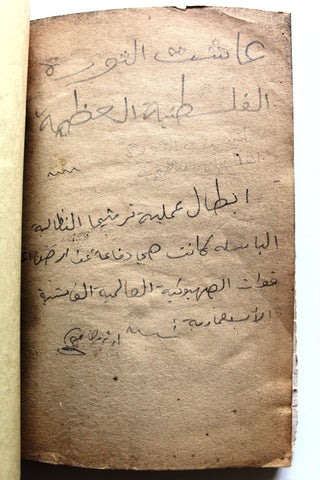 عاشت الثورة
الفلسطنية العظيمة
ابطال عملية ترشيحا النظالية
الباسلة كانت هي دفاعة عن
قوات الصهيونية العالمية الفاشية
الأستعمارية